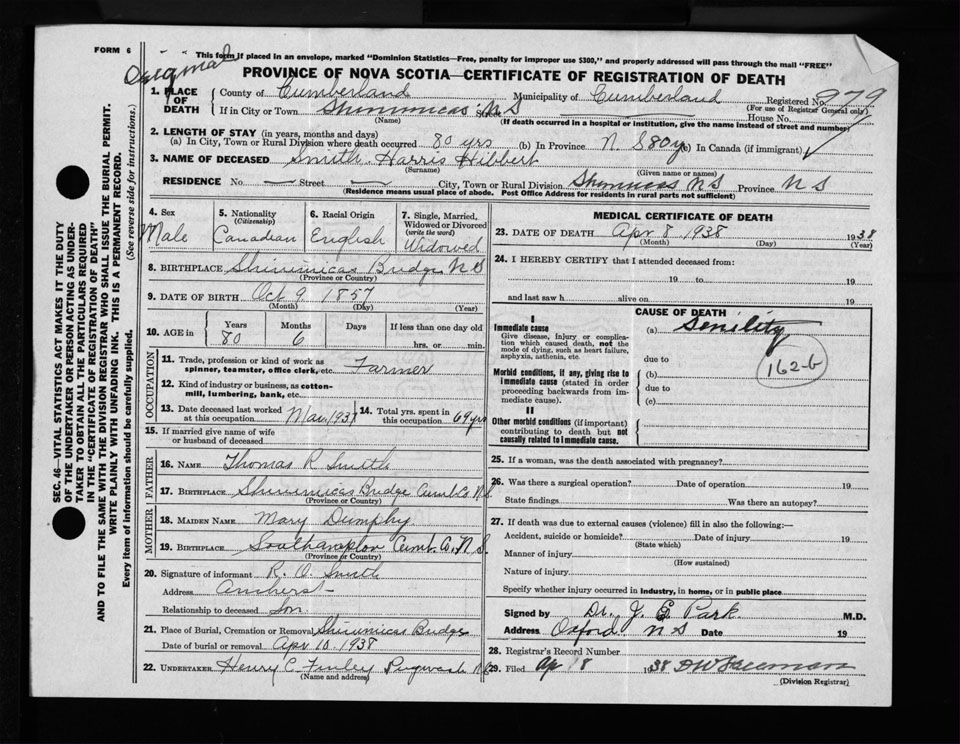 FORM 6
Original
This form if placed in an envelope, marked "Dominion Statistics—Free, penalty for improper use $300," and properly addressed will pass through the mail "FREE"
PROVINCE OF NOVA SCOTIA—CERTIFICATE OF REGISTRATION OF DEATH
1. PLACE OF DEATH County of Cumberland Municipality of Cumberland Registered No. 979
(For use of Registrar General only)
If in City or Town Shinimicas N S House No.
(Name) (If death occurred in a hospital or institution, give the name instead of street and number)
2. LENGTH OF STAY (in years, months and days)
(a) In City, Town or Rural Division where death occurred 80 yrs (b) In Province N. S 80 y (c) In Canada (if immigrant)
3. NAME OF DECEASED Smith Harris Hibbert
(Surname) (Given name or names)
RESIDENCE No — Street — City, Town or Rural Division Shinimicas N S Province N S
(Residence means usual place of abode. Post Office Address for residents in rural parts not sufficient)
4. Sex Male
5. Nationality (Citizenship) Canadian
6. Racial Origin English
7. Single, Married, Widowed or Divorced (write the word) Widowed
8. BIRTHPLACE Shinimicas Bridge N S
(Province or Country)
9. DATE OF BIRTH Oct 9 1857
(Month) (Day) (Year)
10. AGE in Years 80 Months 6 Days If less than one day old hrs. or min.
OCCUPATION
11. Trade, profession or kind of work as spinner, teamster, office clerk, etc. Farmer
12. Kind of industry or business, as cotton-mill, lumbering, bank, etc.
13. Date deceased last worked at this occupation Mar 1937
14. Total yrs. spent in this occupation 64 yrs
15. If married give name of wife or husband of deceased
FATHER
16. NAME Thomas R Smith
17. BIRTHPLACE Shinimicas Bridge Cumb. Co. N. S.
(Province or Country)
MOTHER
18. MAIDEN NAME Mary Dumphy
19. BIRTHPLACE Southampton Cumb. Co. N. S.
(Province or Country)
20. Signature of informant R. O. Smith
Address Amherst
Relationship to deceased Son
21. Place of Burial, Cremation or Removal Shinimicas Bridge
Date of burial or removal Apr 10. 1938
22. UNDERTAKER Henry C Finley Pugwash N S
(Name and address)
MEDICAL CERTIFICATE OF DEATH
23. DATE OF DEATH Apr 8 1938 1938
(Month) (Day) (Year)
24. I HEREBY CERTIFY that I attended deceased from:
19 to 19
and last saw h alive on 19
I
Immediate cause
Give disease, injury or complication which caused death, not the mode of dying, such as heart failure, asphyxia, asthenia, etc.
Morbid conditions, if any, giving rise to immediate cause (stated in order proceeding backwards from immediate cause).
II
Other morbid conditions (if important) contributing to death but not causally related to immediate cause.
CAUSE OF DEATH
(a) Senility
due to
(b)
due to
(c)
162-b
25. If a woman, was the death associated with pregnancy?
26. Was there a surgical operation? Date of operation 19
State findings Was there an autopsy?
27. If death was due to external causes (violence) fill in also the following:—
Accident, suicide or homicide? Date of injury 19
(State which)
Manner of injury
(How sustained)
Nature of injury
Specify whether injury occurred in industry, in home, or in public place
Signed by Dr. J. G. Park M.D.
Address Oxford N S Date 19
28. Registrar's Record Number
29. Filed Ap 18 1938
(Division Registrar)
SEC. 46—VITAL STATISTICS ACT MAKES IT THE DUTY
OF THE UNDERTAKER OR PERSON ACTING AS UNDER-
TAKER TO OBTAIN ALL THE PARTICULARS REQUIRED
IN THE "CERTIFICATE OF REGISTRATION OF DEATH"
AND TO FILE THE SAME WITH THE DIVISION REGISTRAR WHO SHALL ISSUE THE BURIAL PERMIT.
WRITE PLAINLY WITH UNFADING INK. THIS IS A PERMANENT RECORD.
Every item of information should be carefully supplied. (See reverse side for instructions.)